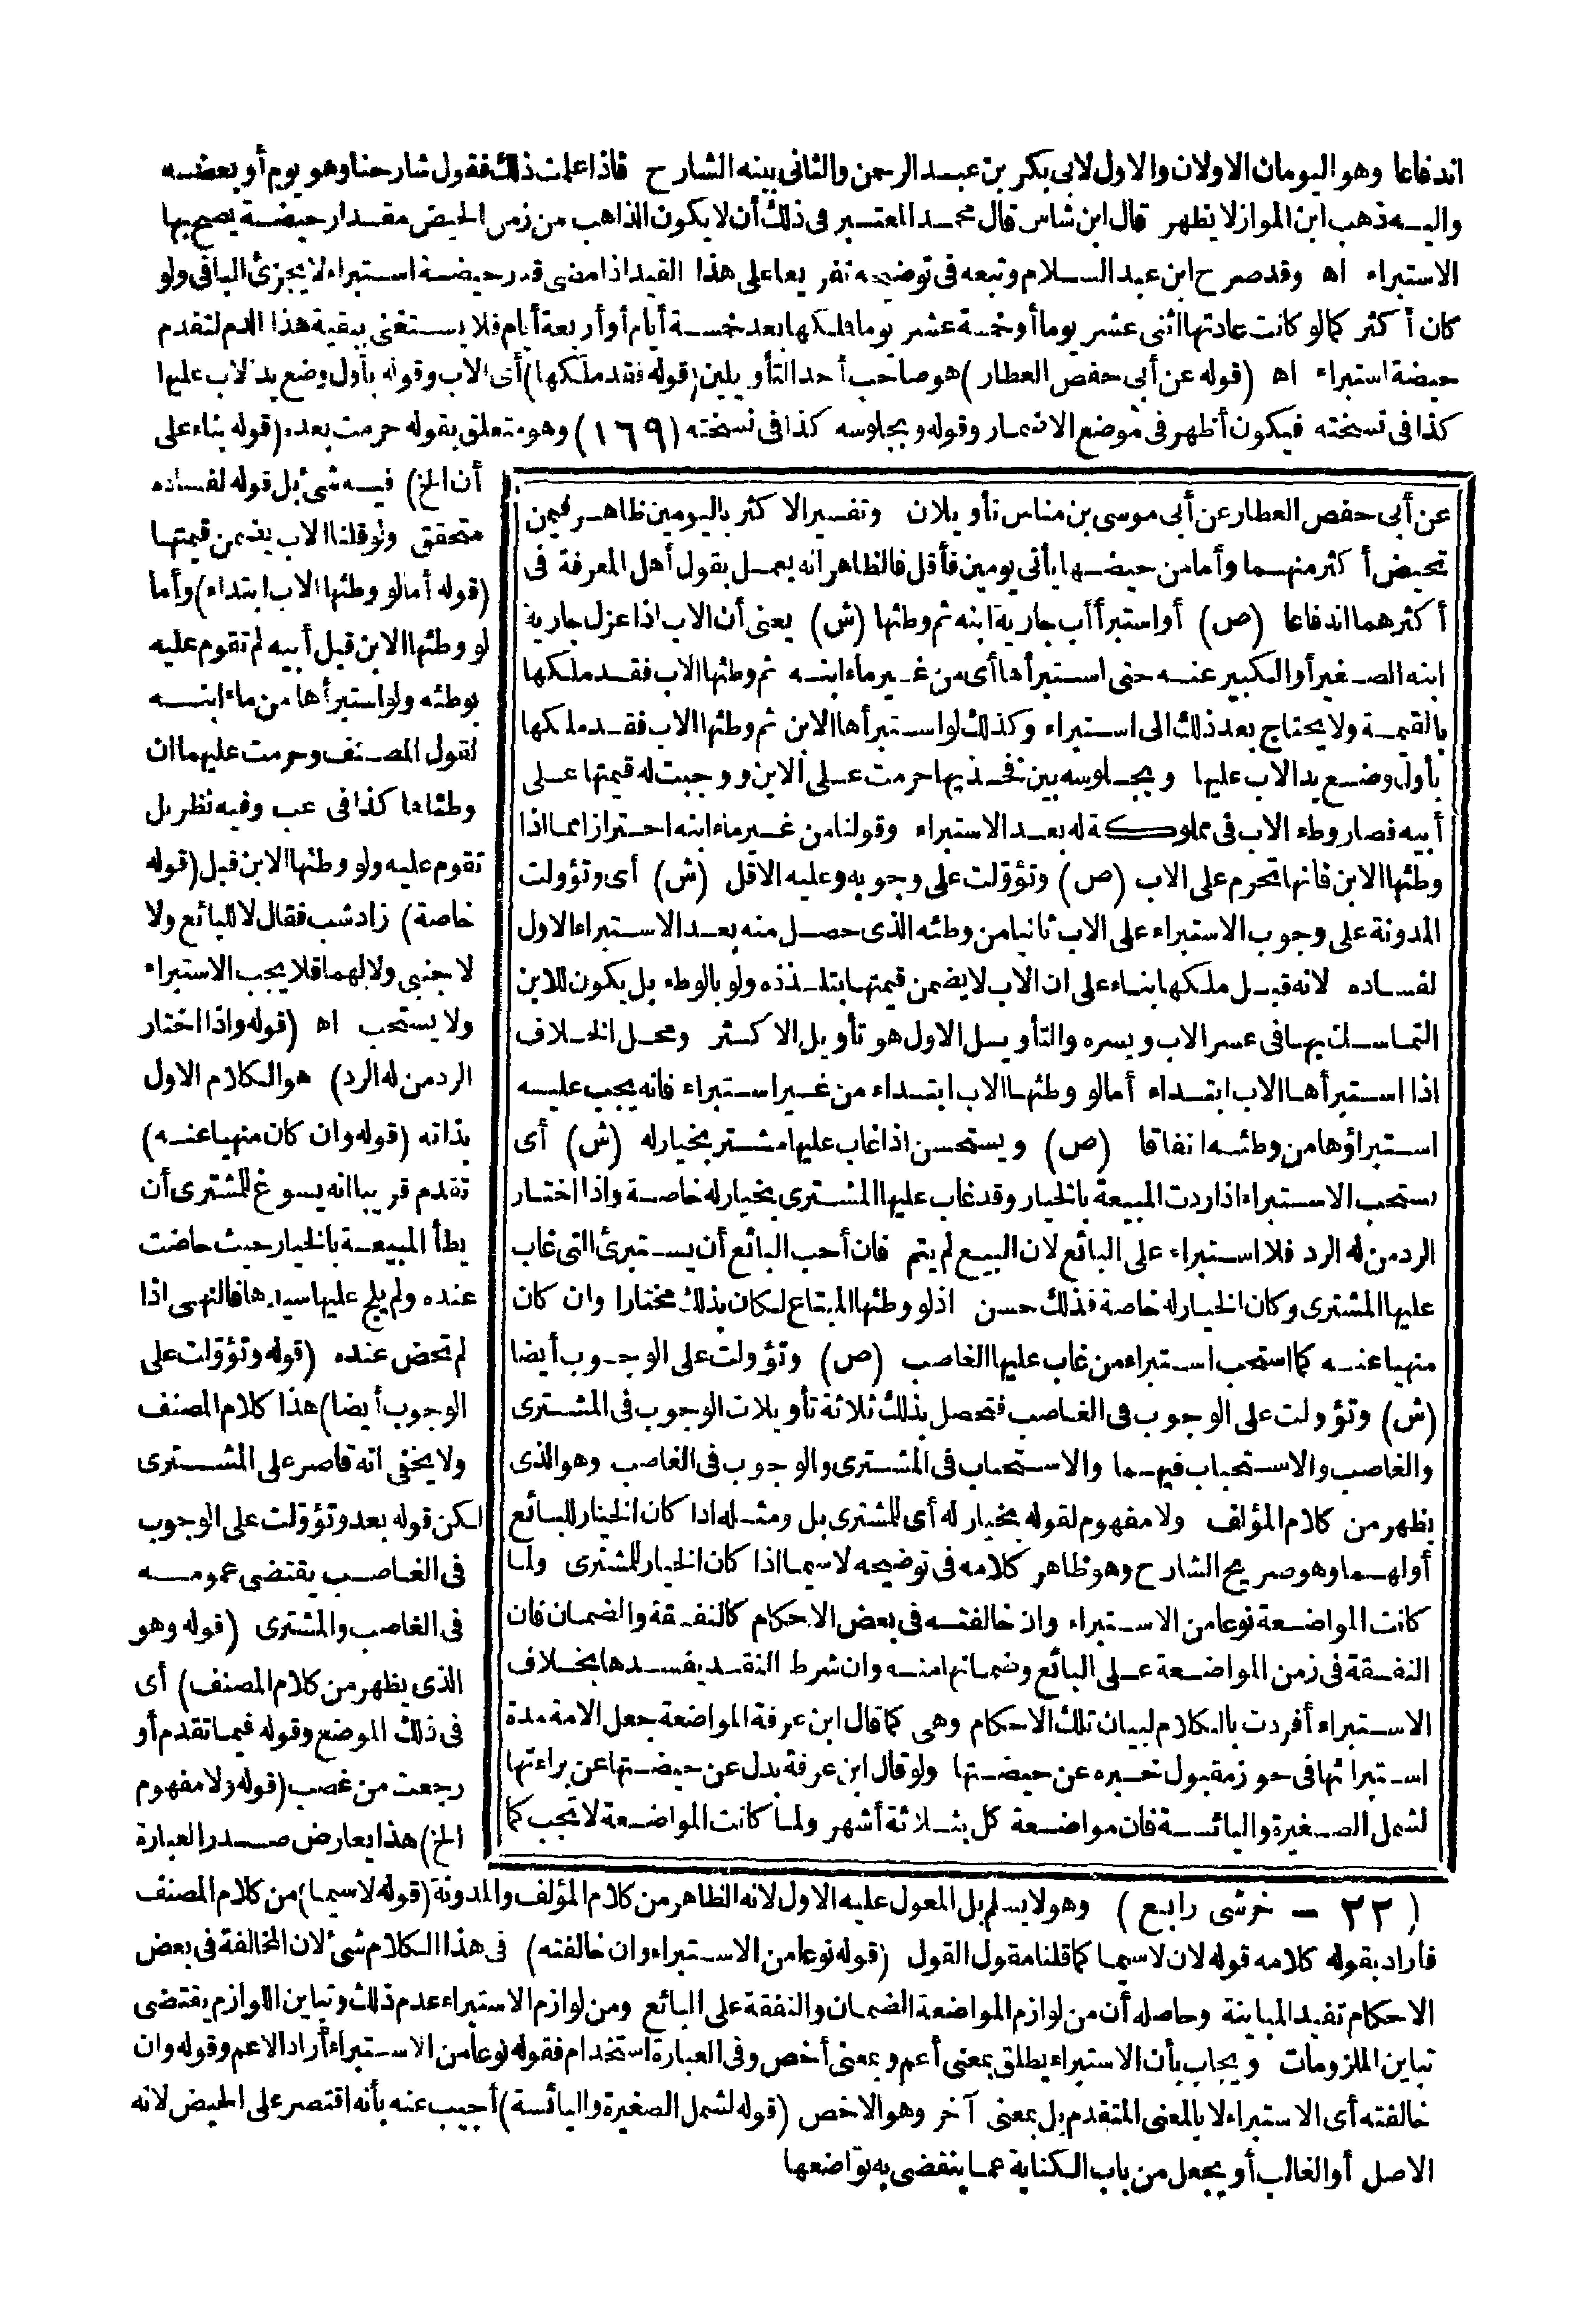 اندفاعا وهو اليومان الاولان والاول لابى بكر بن عبد الرحمن والثانى بينه الشارح فاذا علمت ذلك فقول شارحنا وهو يوم أو بعضه
واليه ذهب ابن المواز لا يظهر قال ابن شاس قال محمد المعتبر فى ذلك أن لا يكون الذاهب من زمن الحيض مقدار حيضة يصح بها
الاستبراء اه وقد صرح ابن عبد السلام وتبعه فى توضيحه تفريعا على هذا القيد اذا مضى قدر حيضة استبراء لا يجزئ الباقى ولو
كان أكثر كما لو كانت عادتها اثنى عشر يوما أو خمسة عشر يوما فملكها بعد خمسة أيام أو أربعة أيام فلا يستغنى ببقية هذا الدم لتقدم
حيضة استبراء اه (قوله عن أبى حفص العطار) هو صاحب أحد التأويلين (قوله فقد ملكها) أى الاب وقوله بأول وضع يد الاب عليها
كذا فى نسخته فيكون أظهر فى موضع الاضمار وقوله وبجلوسه كذا فى نسخته (١٦٩) وهو متعلق بقوله حرمت بعده (قوله بناء على
أن الخ) فيه شئ بل قوله لفساده
متحقق ولو قلنا الاب يضمن قيمتها
(قوله أما لو وطئها الاب ابتداء) وأما
لو وطئها الابن قبل أبيه لم تقوم عليه
بوطئه ولو استبرأها من ماء ابنه
لقول المصنف وحرمت عليهما ان
وطئاها كذا فى عب وفيه نظر بل
تقوم عليه ولو وطئها الابن قبل (قوله
خاصة) زاد شب فقال لا للبائع ولا
لاجنبى ولا لهما فلا يجب الاستبراء
ولا يستحب اه (قوله واذا اختار
الرد من له الرد) هو الكلام الاول
بذاته (قوله وان كان منهيا عنه)
تقدم قريبا انه يسوغ للمشترى أن
يطأ المبيعة بالخيار حيث حاضت
عنده ولم يلج عليها سيدها فالنهى اذا
لم تحض عنده (قوله وتؤولت على
الوجوب أيضا) هذا كلام المصنف
ولا يخفى انه قاصر على المشترى
لكن قوله بعد وتؤولت على الوجوب
فى الغاصب يقتضى عمومه
فى الغاصب والمشترى (قوله وهو
الذى يظهر من كلام المصنف) أى
فى ذلك الموضع وقوله فيما تقدم أو
رجعت من غصب (قوله ولا مفهوم
الخ) هذا يعارض صدر العبارة
عن أبى حفص العطار عن أبى موسى بن مناس تأويلان وتفسير الاكثر باليومين ظاهر فيمن
تحيض أكثر منهما وأما من حيضها يأتى يومين فأقل فالظاهر انه يعمل بقول أهل المعرفة فى
أكثرهما اندفاعا (ص) أو استبرأ أب جارية ابنه ثم وطئها (ش) يعنى أن الاب اذا عزل جارية
ابنه الصغير أو الكبير عنه حتى استبرأها أى من غير ماء ابنه ثم وطئها الاب فقد ملكها
بالقيمة ولا يحتاج بعد ذلك الى استبراء وكذلك لو استبرأها الابن ثم وطئها الاب فقد ملكها
بأول وضع يد الاب عليها وبجلوسه بين فخذيها حرمت على الابن ووجبت له قيمتها على
أبيه فصار وطء الاب فى مملوكة له بعد الاستبراء وقولنا من غير ماء ابنه احترازا مما اذا
وطئها الابن فانها تحرم على الاب (ص) وتؤولت على وجوبه وعليه الاقل (ش) أى وتؤولت
المدونة على وجوب الاستبراء على الاب ثانيا من وطئه الذى حصل منه بعد الاستبراء الاول
لفساده لانه قبل ملكها بناء على ان الاب لا يضمن قيمتها بتلذذه ولو بالوطء بل يكون للابن
التماسك بها فى عسر الاب ويسره والتأويل الاول هو تأويل الاكثر ومحل الخلاف
اذا استبرأها الاب ابتداء أما لو وطئها الاب ابتداء من غير استبراء فانه يجب عليه
استبراؤها من وطئه اتفاقا (ص) ويستحسن اذا غاب عليها مشتر بخيار له (ش) أى
يستحب الاستبراء اذا ردت المبيعة بالخيار وقد غاب عليها المشترى بخيار له خاصة واذا اختار
الرد من له الرد فلا استبراء على البائع لان البيع لم يتم فان أحب البائع أن يستبرئ التى غاب
عليها المشترى وكان الخيار له خاصة فذلك حسن اذ لو وطئها المبتاع لكان بذلك مختارا وان كان
منهيا عنه كما استحب استبراء من غاب عليها الغاصب (ص) وتؤولت على الوجوب أيضا
(ش) وتؤولت على الوجوب فى الغاصب فتحصل بذلك ثلاثة تأويلات الوجوب فى المشترى
والغاصب والاستحباب فيهما والاستحباب فى المشترى والوجوب فى الغاصب وهو الذى
يظهر من كلام المؤلف ولا مفهوم لقوله بخيار له أى للمشترى بل ومثله اذا كان الخيار للبائع
أو لهما وهو صريح الشارح وهو ظاهر كلامه فى توضيحه لا سيما اذا كان الخيار للمشترى ولما
كانت المواضعة نوعا من الاستبراء وان خالفته فى بعض الاحكام كالنفقة والضمان فان
النفقة فى زمن المواضعة على البائع وضمانها منه وان شرط النقد يفسدها بخلاف
الاستبراء أفردت بالكلام لبيان تلك الاحكام وهى كما قال ابن عرفة المواضعة جعل الامة مدة
استبرائها فى حوز مقبول خبره عن حيضتها ولو قال ابن عرفة بدل عن حيضتها عن براءتها
لشمل الصغيرة واليائسة فان مواضعة كل بثلاثة أشهر ولما كانت المواضعة لا تجب كما
(٢٢ - خرشى رابع) وهو لا يسلم بل المعول عليه الاول لانه الظاهر من كلام المؤلف والمدونة (قوله لا سيما) من كلام المصنف
فأراد بقوله كلامه قوله لان لا سيما كما قلنا مقول القول (قوله نوعا من الاستبراء وان خالفته) فى هذا الكلام شئ لان المخالفة فى بعض
الاحكام تفيد المباينة وحاصله أن من لوازم المواضعة الضمان والنفقة على البائع ومن لوازم الاستبراء عدم ذلك وتباين اللوازم يقتضى
تباين الملزومات ويجاب بأن الاستبراء يطلق بمعنى أعم وبمعنى أخص وفى العبارة استخدام فقوله نوعا من الاستبراء أراد الاعم وقوله وان
خالفته أى الاستبراء لا بالمعنى المتقدم بل بمعنى آخر وهو الاخص (قوله لشمل الصغيرة واليائسة) أجيب عنه بأنه اقتصر على الحيض لانه
الاصل أو الغالب أو يجعل من باب الكناية عما ينقضى به تواضعها